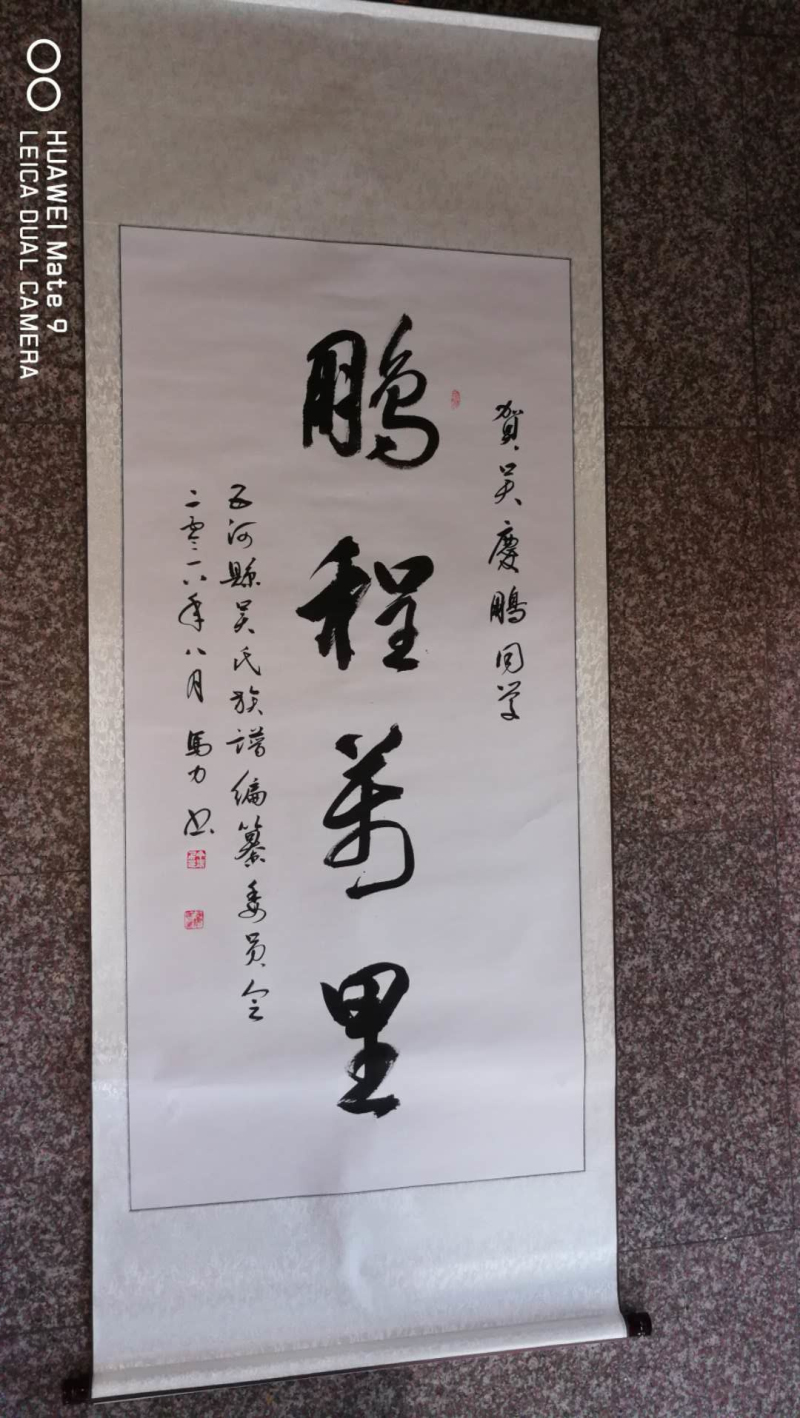 賀吴慶鵬同学
鵬程萬里
五河縣吴氏族譜編纂委員会
二零一八年八月 馬力书
HUAWEI Mate 9
LEICA DUAL CAMERA